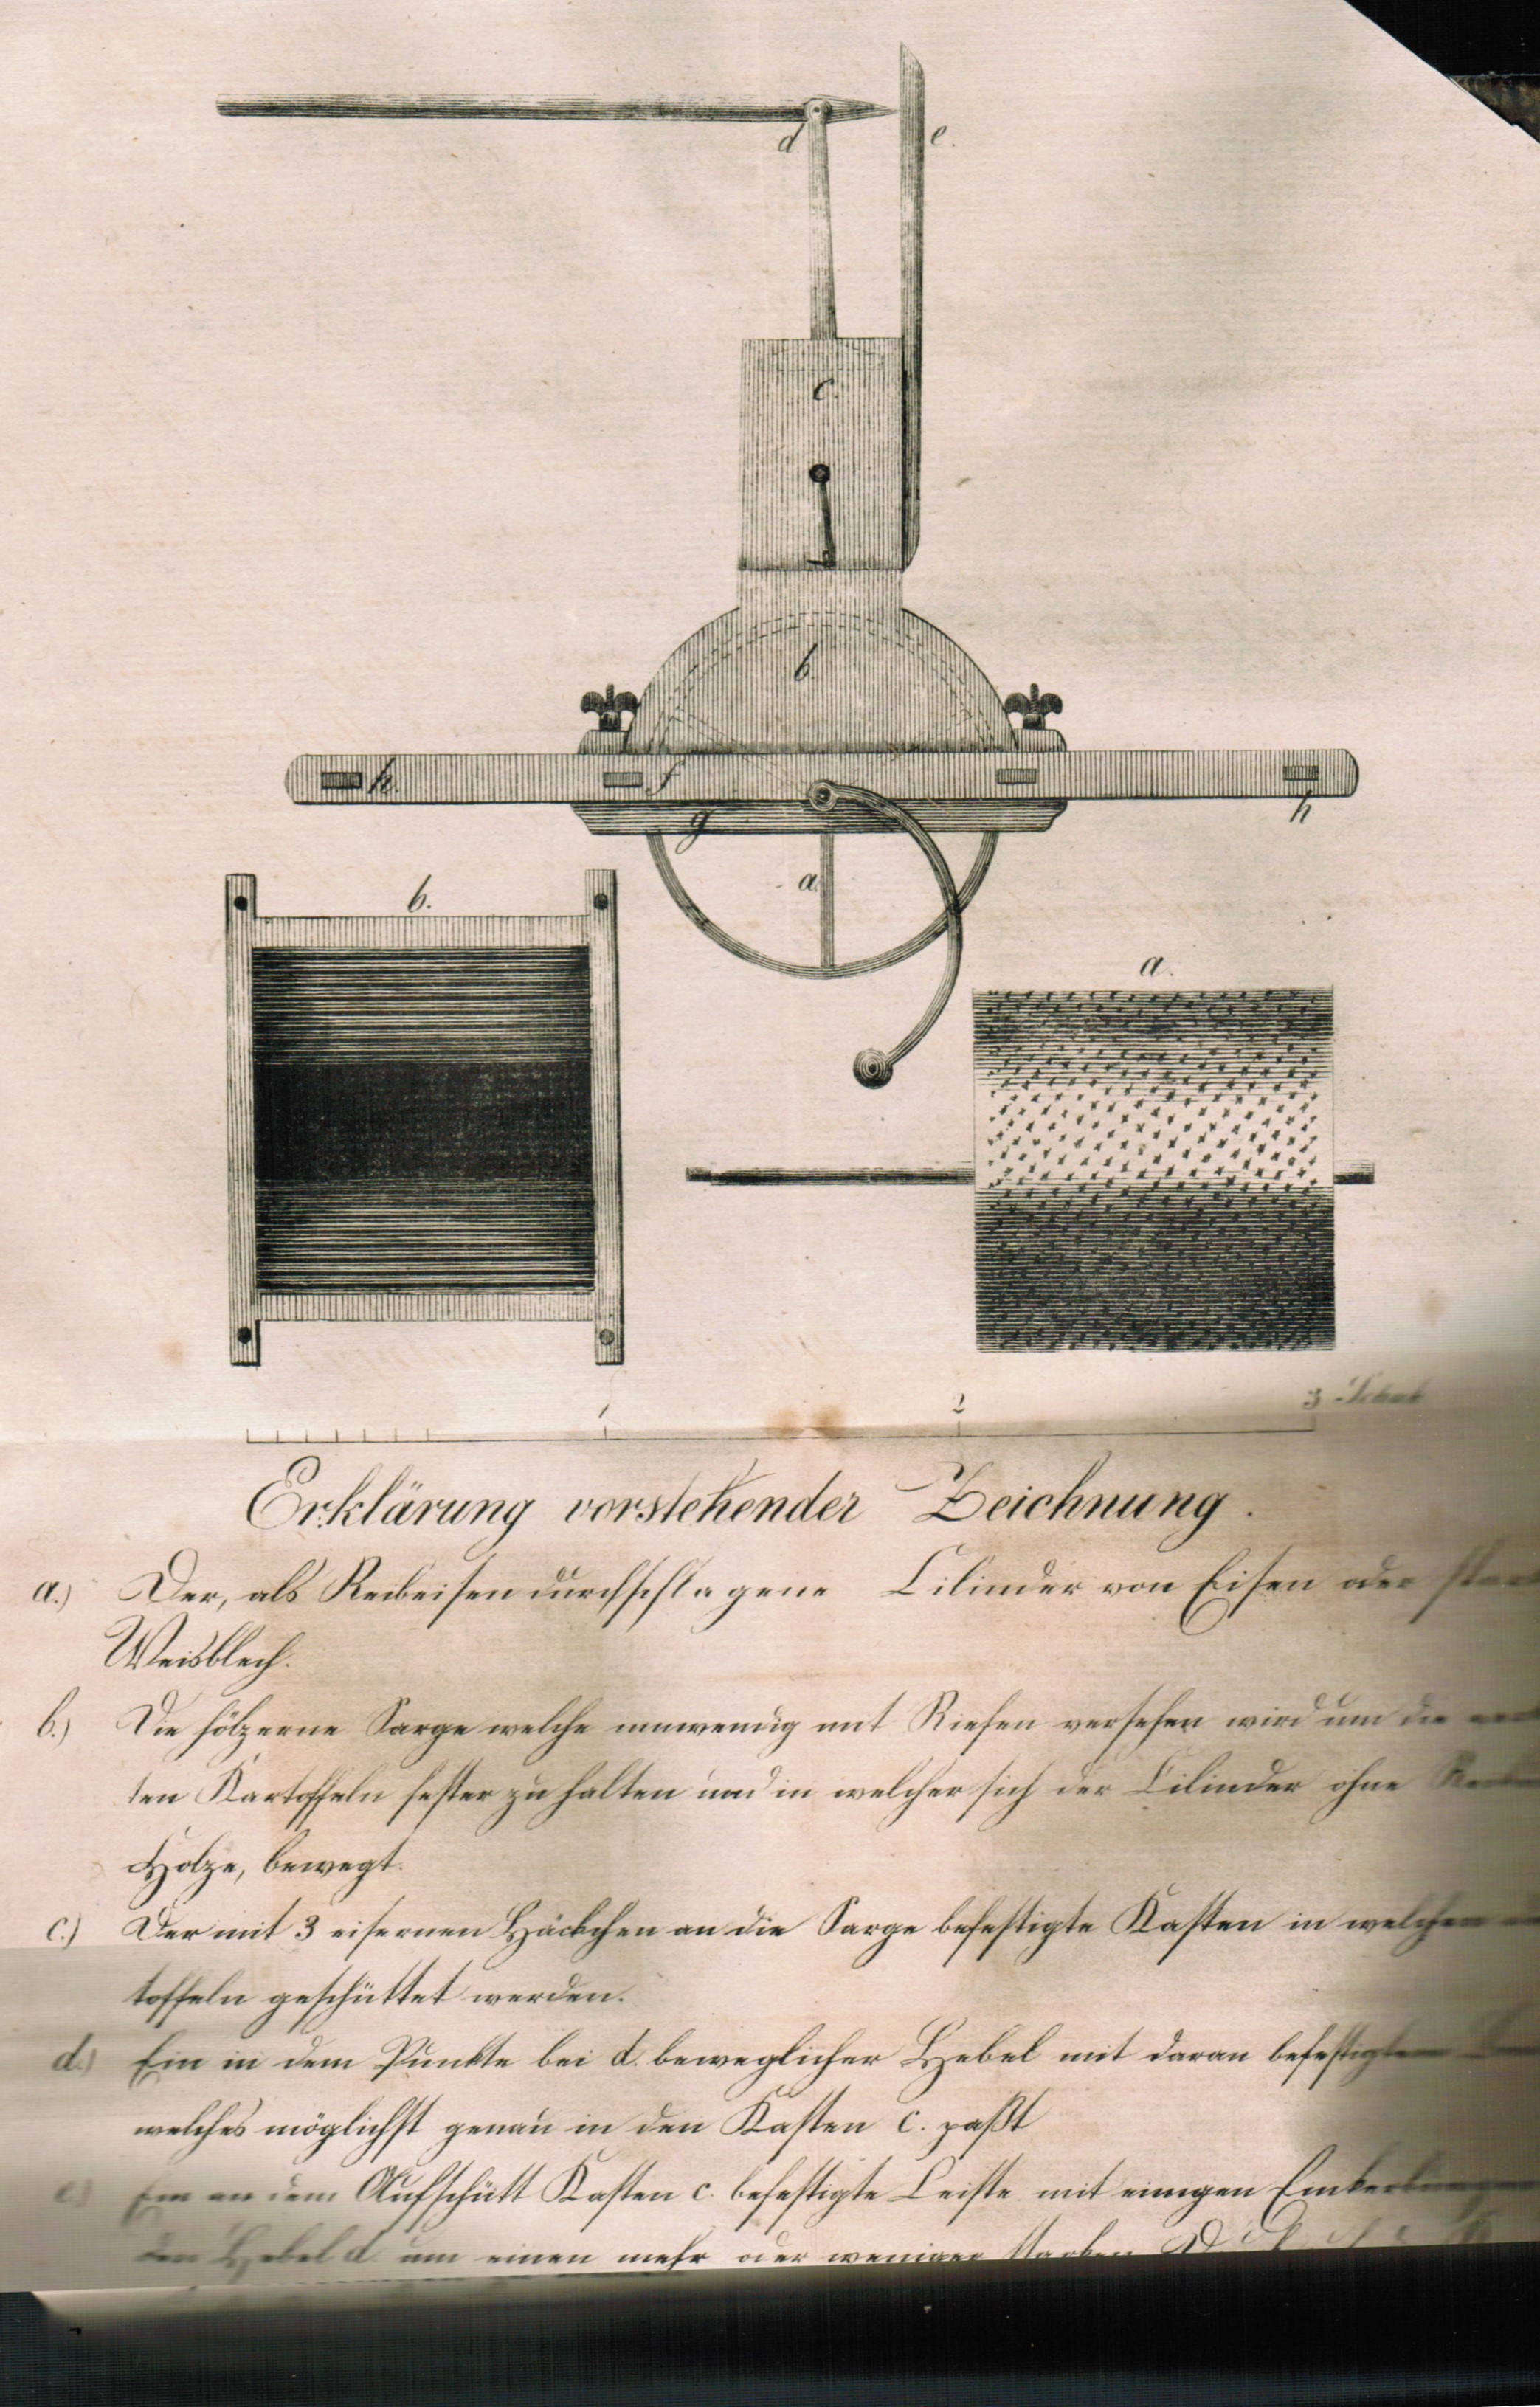 d
e.
c.
b
h.
f
h
g
b.
a
a.
1 2 3 Schuh
Erklärung vorstehender Zeichnung.
a.) Der, als Reibeisen durchschlagene Cilinder von Eisen oder
Weisblech.
b.) Die hölzerne Sarge welche innwendig mit Riefen versehen wird um die
ten Kartoffeln fester zu halten und in welcher sich der Cilinder ohne
Holze, bewegt.
c.) Der mit 3 eisernen Häckchen an die Sarge befestigte Kasten in welchen
toffeln geschüttet werden.
d.) Ein in dem Punkte bei d. beweglicher Hebel mit daran befestigtem
welches möglichst genau in den Kasten c. paßt
e.) Ein an dem Aufschütt Kasten c. befestigte Leiste mit einigen Einkerbungen
den Hebel d um einen mehr oder weniger starken